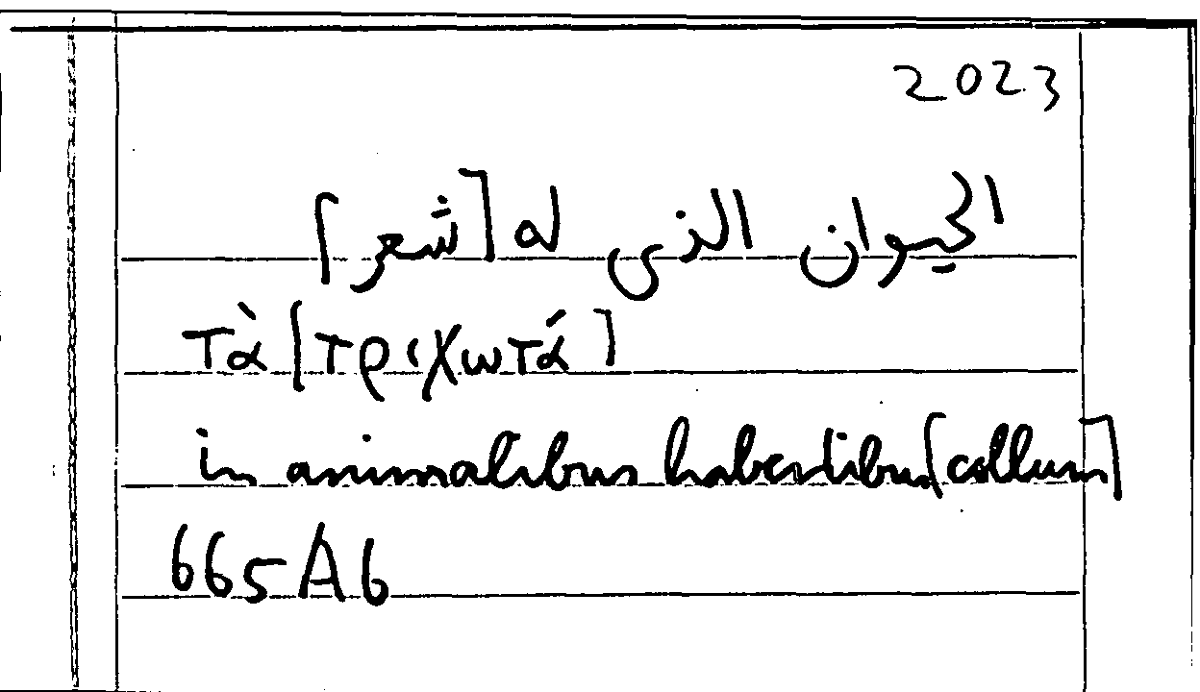 2023
الحيوان الذى له [شعر]
τὰ [τριχωτά]
in animalibus habentibus [collum]
665A6